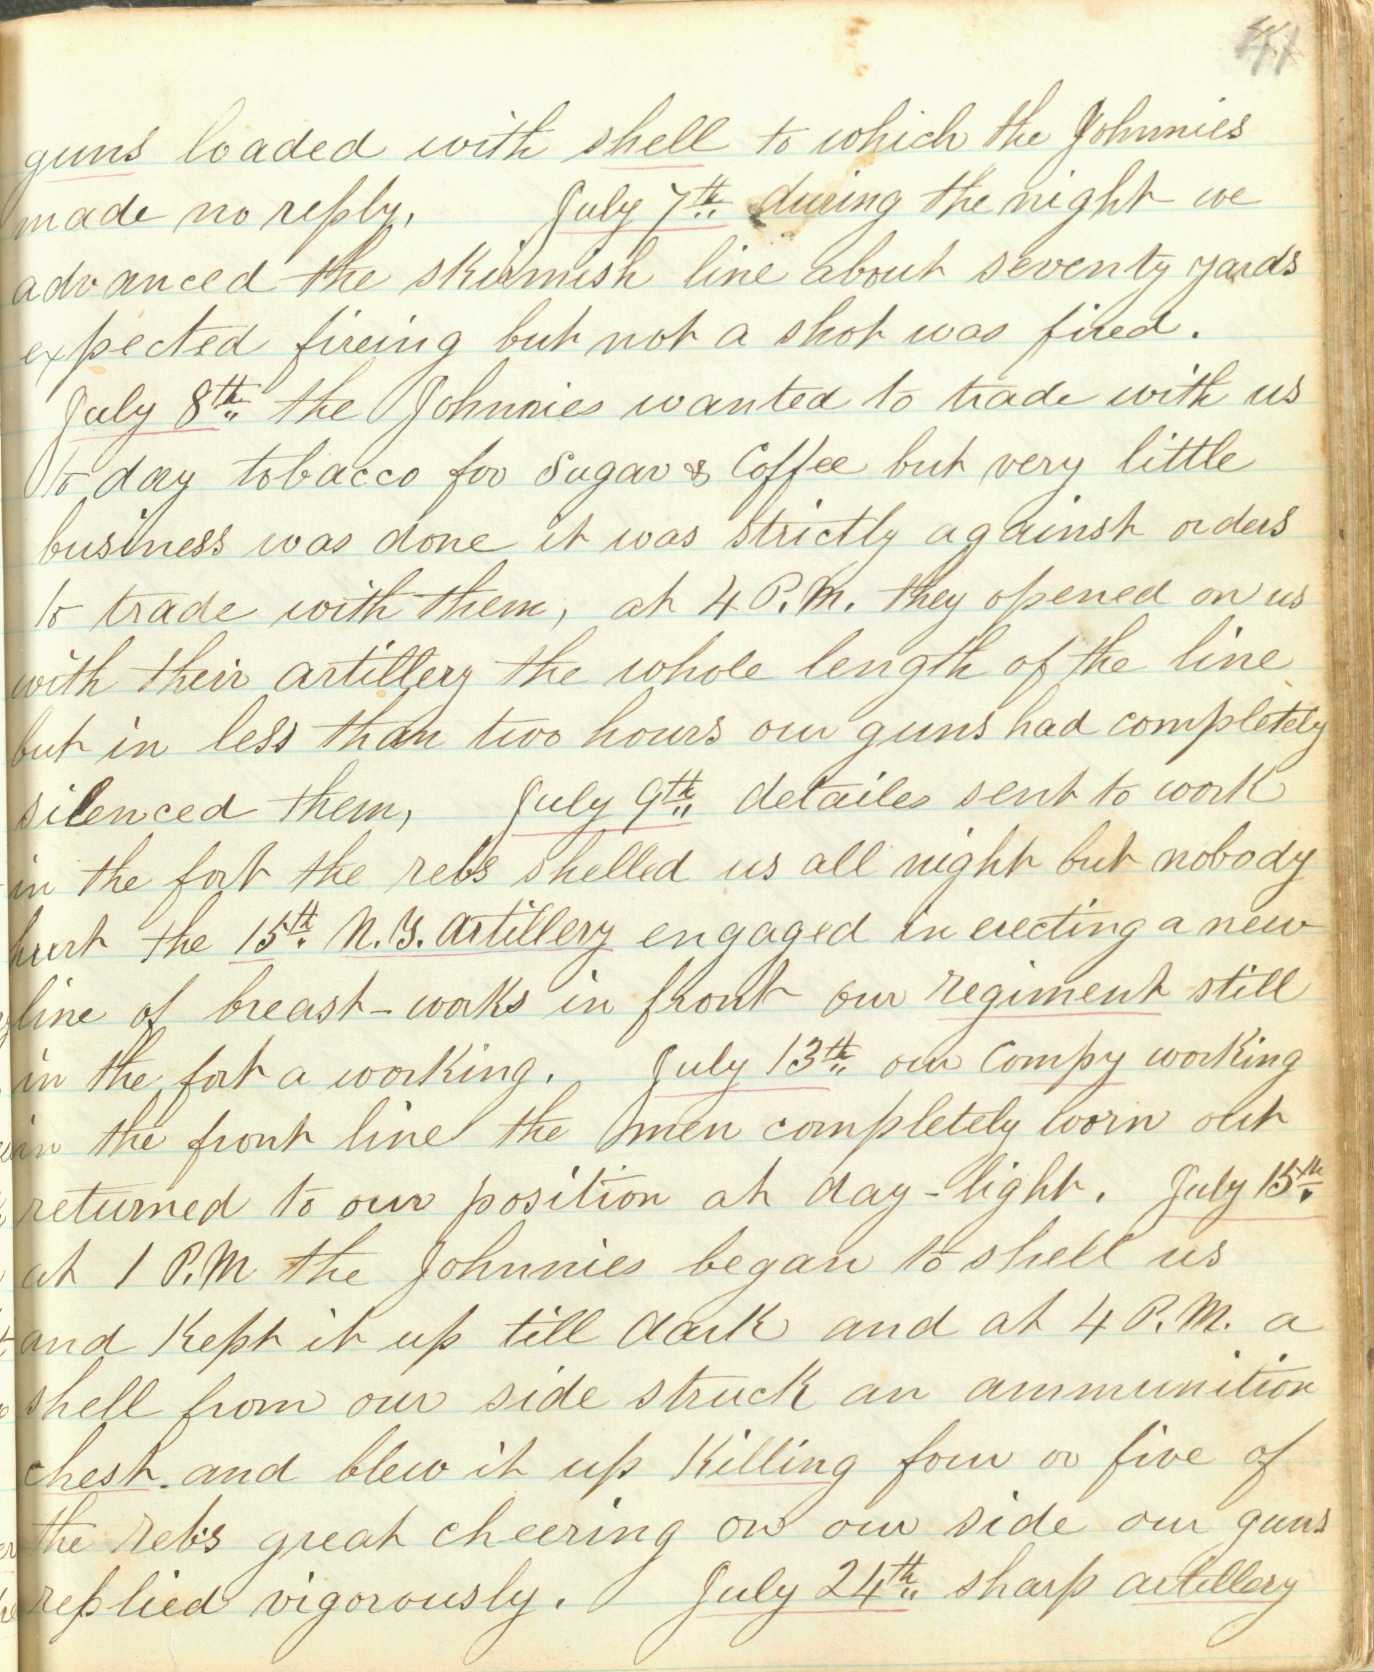 41
guns loaded with shell to which the Johnnies
made no reply, July 7th during the night we
advanced the skirmish line about seventy yards
expected fireing but not a shot was fired.
July 8th the Johnnies wanted to trade with us
to day tobacco for Sugar & Coffee but very little
business was done it was strictly against orders
to trade with them, at 4 P.M. they opened on us
with their artillery the whole length of the line
but in less than two hours our guns had completely
silenced them, July 9th detailes sent to work
in the fort the rebs shelled us all night but nobody
hurt the 15th N.Y. Artillery engaged in erecting a new
line of breast-works in front our regiment still
in the fort a working. July 13th our Compy working
in the front line the men completely worn out
returned to our position at day-light. July 15th
at 1 P.M the Johnnies began to shell us
and Kept it up till dark and at 4 P.M. a
shell from our side struck an ammunition
chest and blew it up Killing four or five of
the rebs great cheering on our side our guns
replied vigorously. July 24th sharp artillery